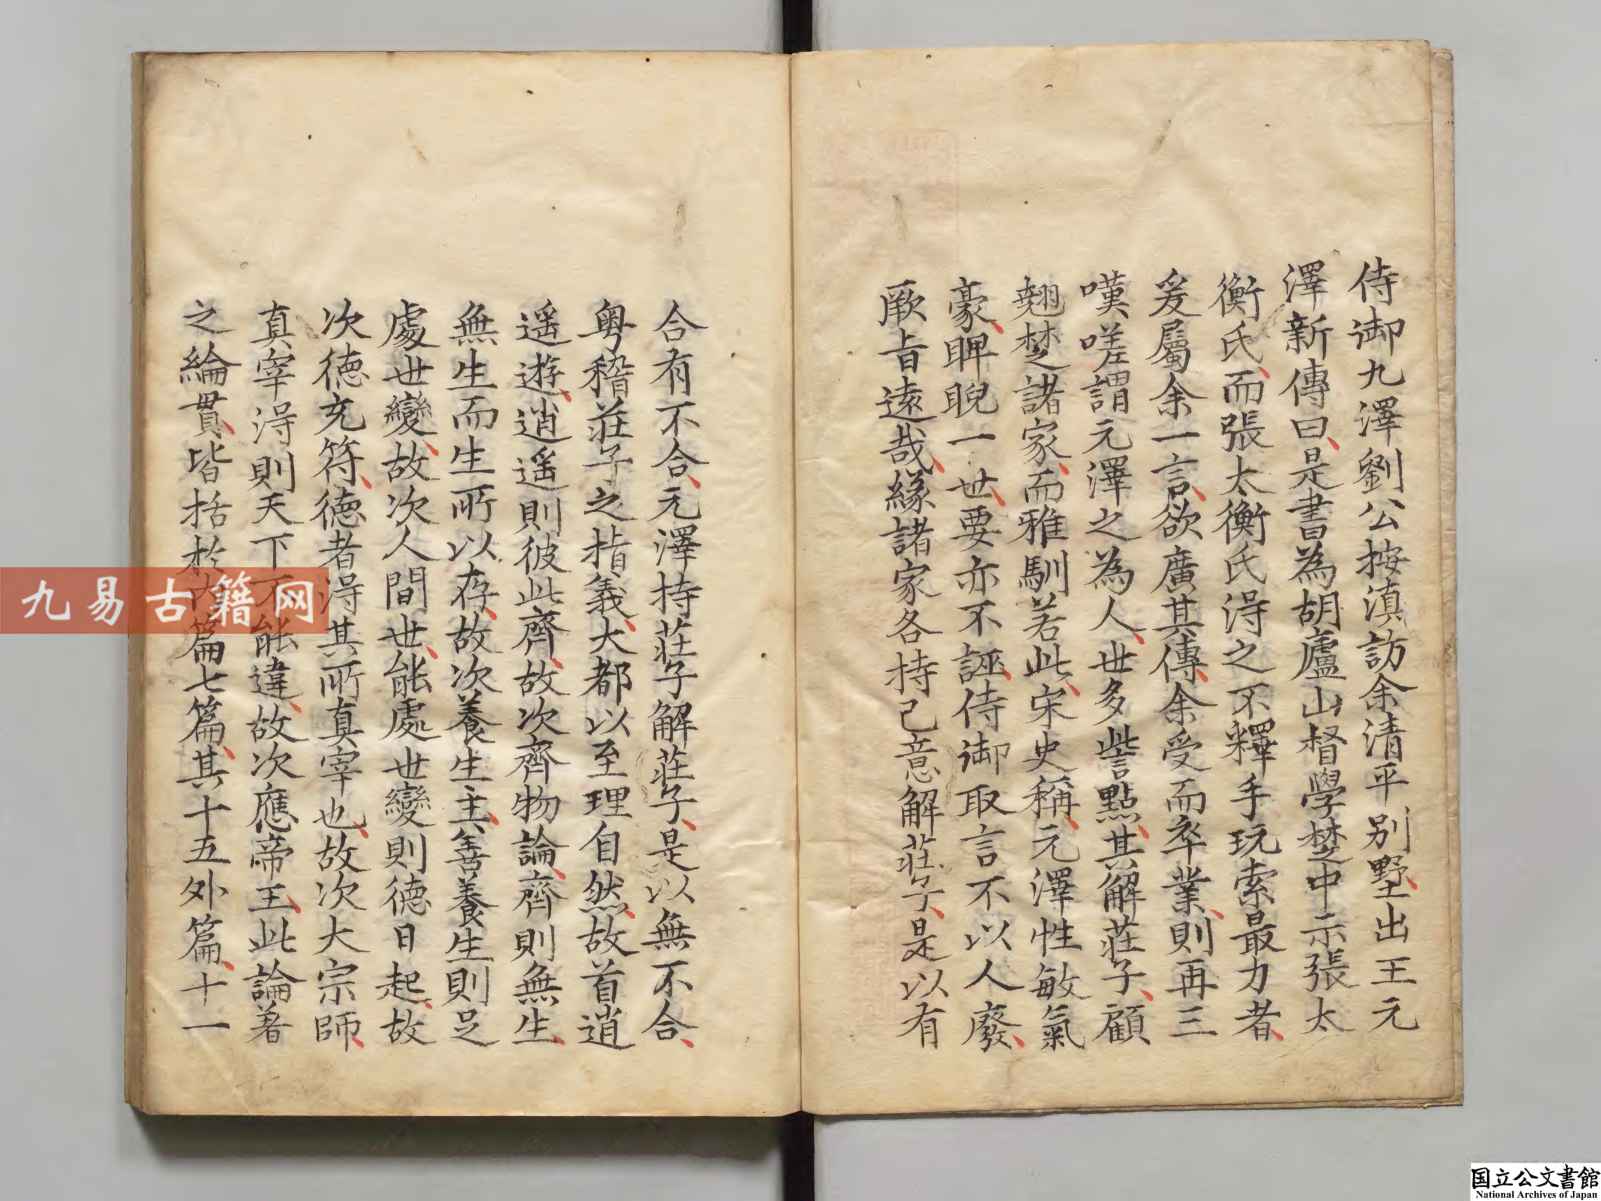 侍御九澤劉公按滇訪余清平別墅出王元
澤新傳曰是書為胡廬山督學楚中示張太
衡氏而張太衡氏淂之不釋手玩索最力者
爰屬余一言欲廣其傳余受而卒業則再三
嘆嗟謂元澤之為人世多訾點其解莊子顧
翹楚諸家而雅馴若此宋史稱元澤性敏氣
豪睥睨一世要亦不誣侍御取言不以人廢
厥旨遠哉緣諸家各持己意解莊子是以有
合有不合元澤持莊子解莊子是以無不合
粵稽莊子之指義大都以至理自然故首逍
遥遊逍遥則彼此齊故次齊物論齊則無生
無生而生所以存故次養生主善養生則足
處世變故次人間世能處世變則德日起故
次德充符德者淂其所真宰也故次大宗師
真宰淂則天下不能違故次應帝王此論著
之綸貫皆括於内篇七篇其十五外篇十一
九易古籍网
国立公文書館
National Archives of Japan